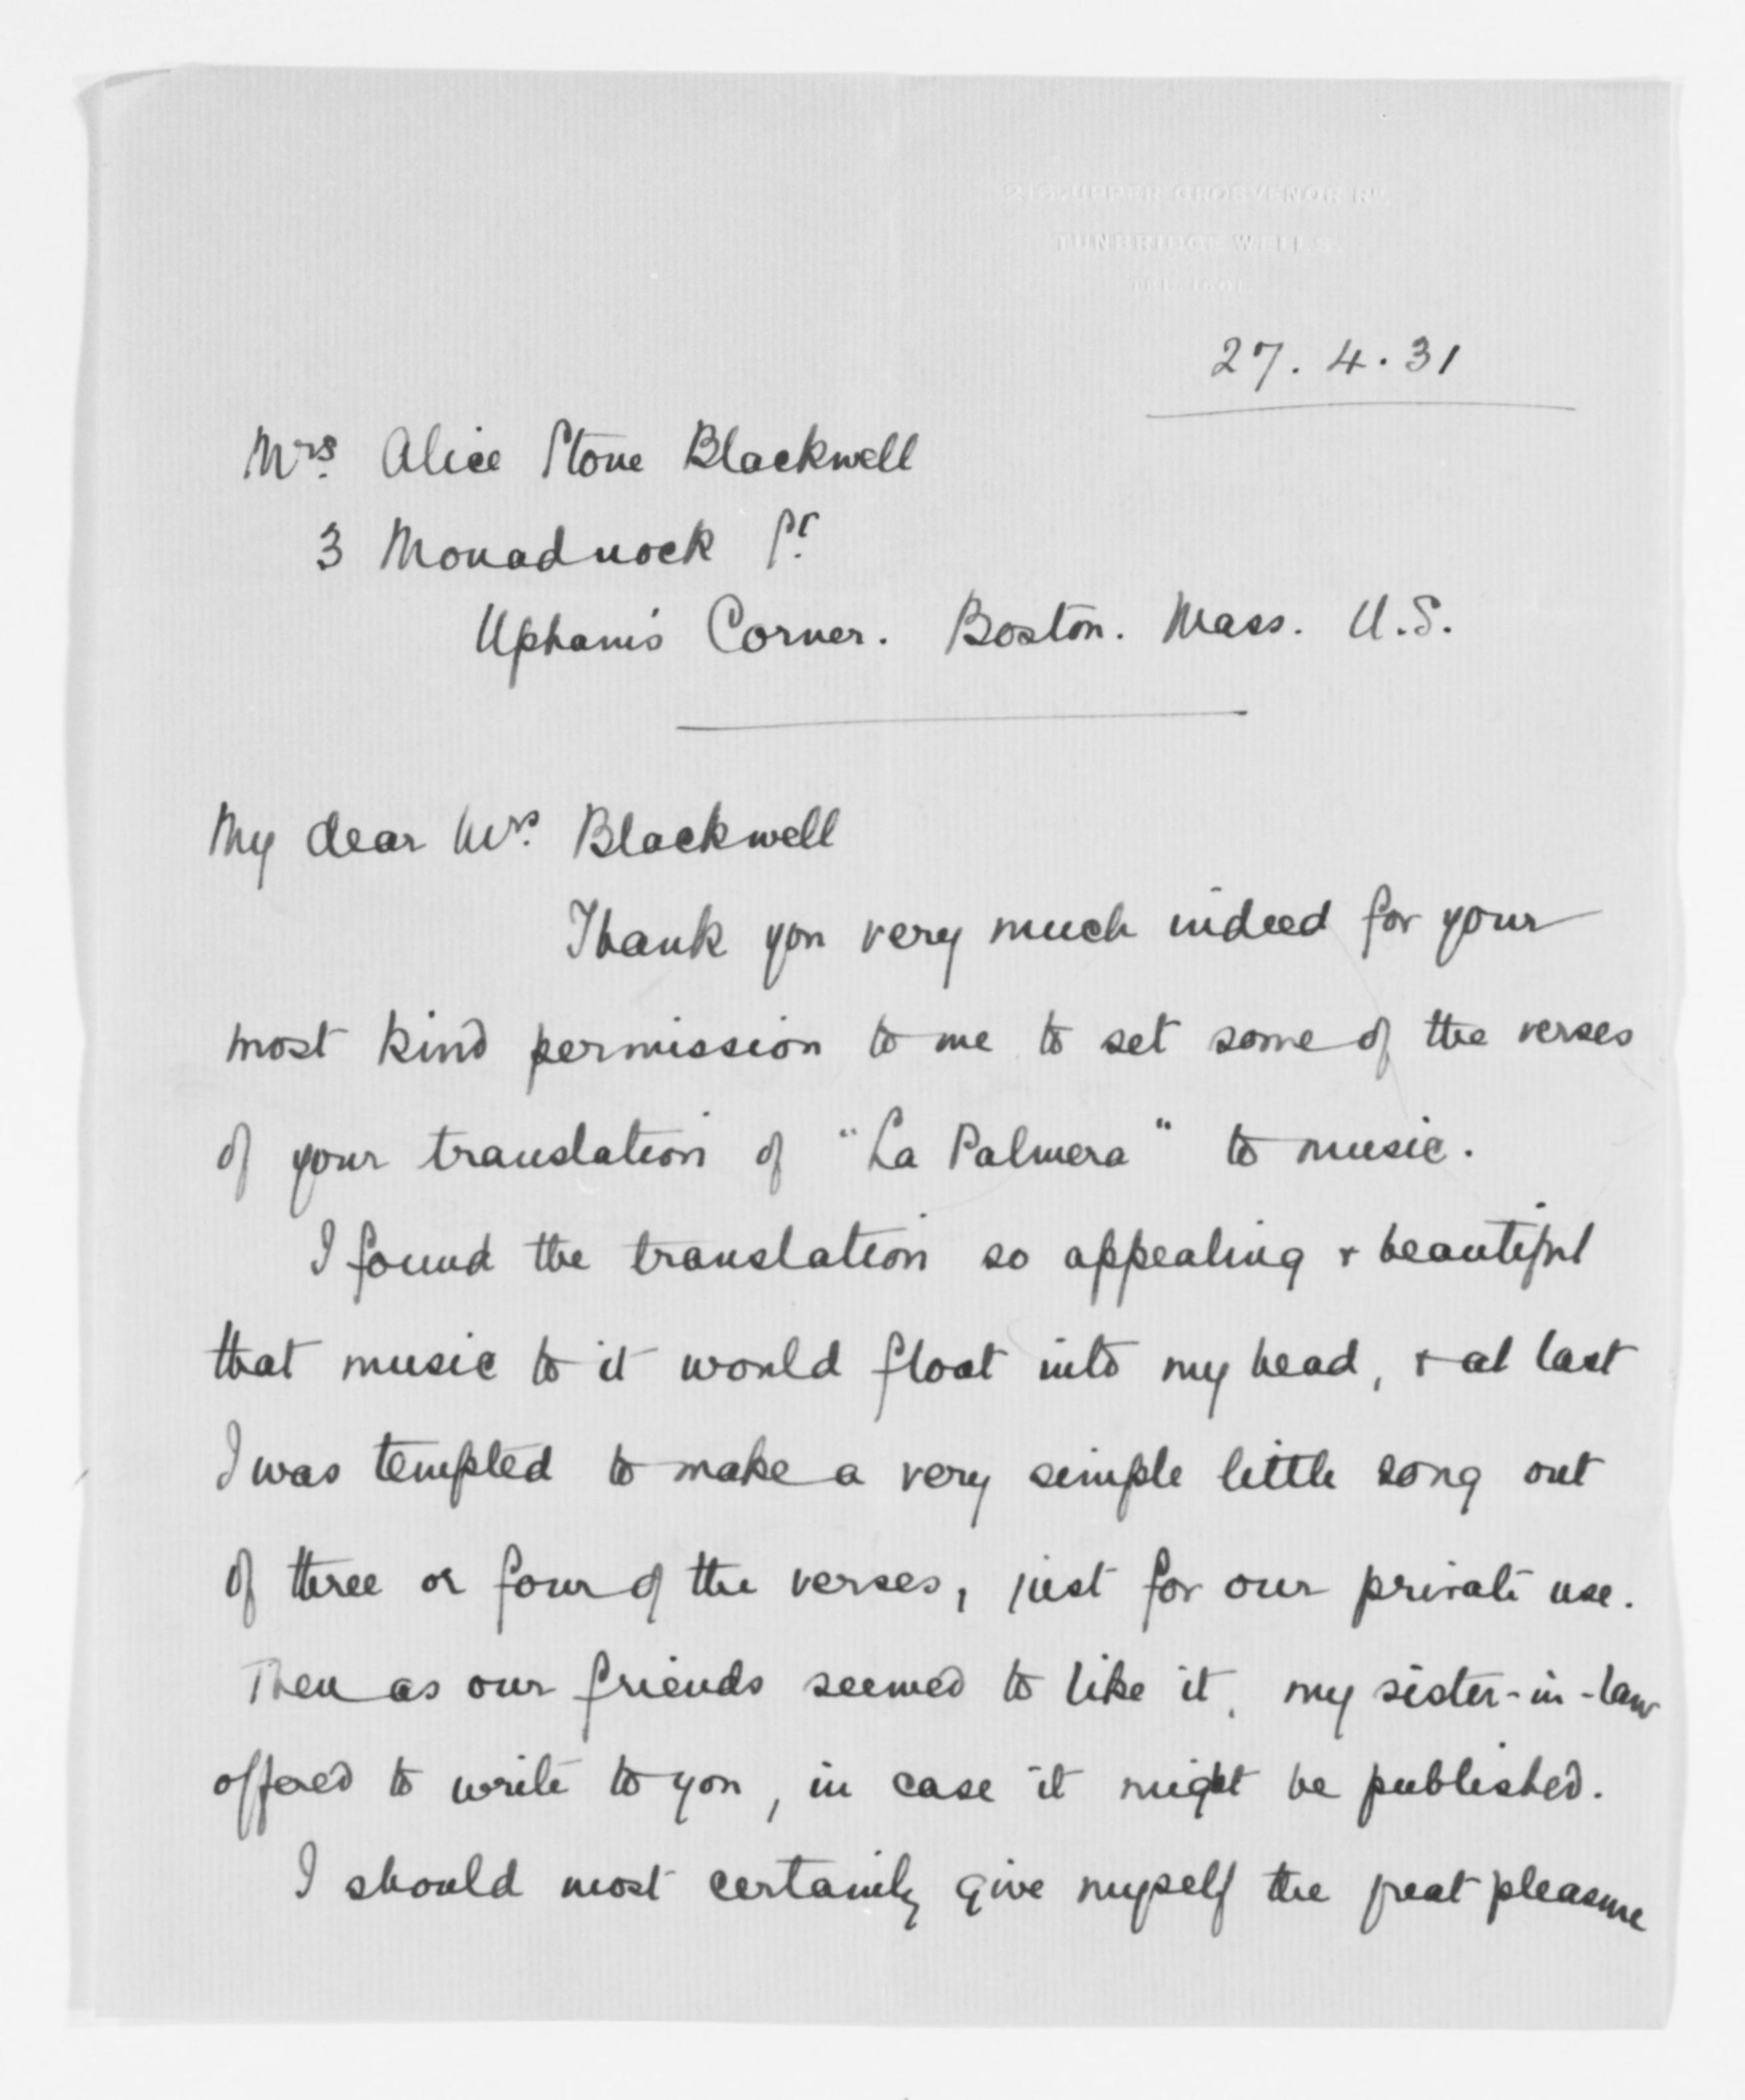 UPPER GROSVENOR RD.
TUNBRIDGE WELLS.
27. 4. 31
Mrs. Alice Stone Blackwell
3 Monadnock St.
Upham's Corner. Boston. Mass. U.S.
My dear Mrs. Blackwell
Thank you very much indeed for your
most kind permission to me to set some of the verses
of your translation of "La Palmera" to music.
I found the translation so appealing & beautiful
that music to it would float into my head, & at last
I was tempted to make a very simple little song out
of three or four of the verses, just for our private use.
Then as our friends seemed to like it, my sister-in-law
offered to write to you, in case it might be published.
I should most certainly give myself the great pleasure